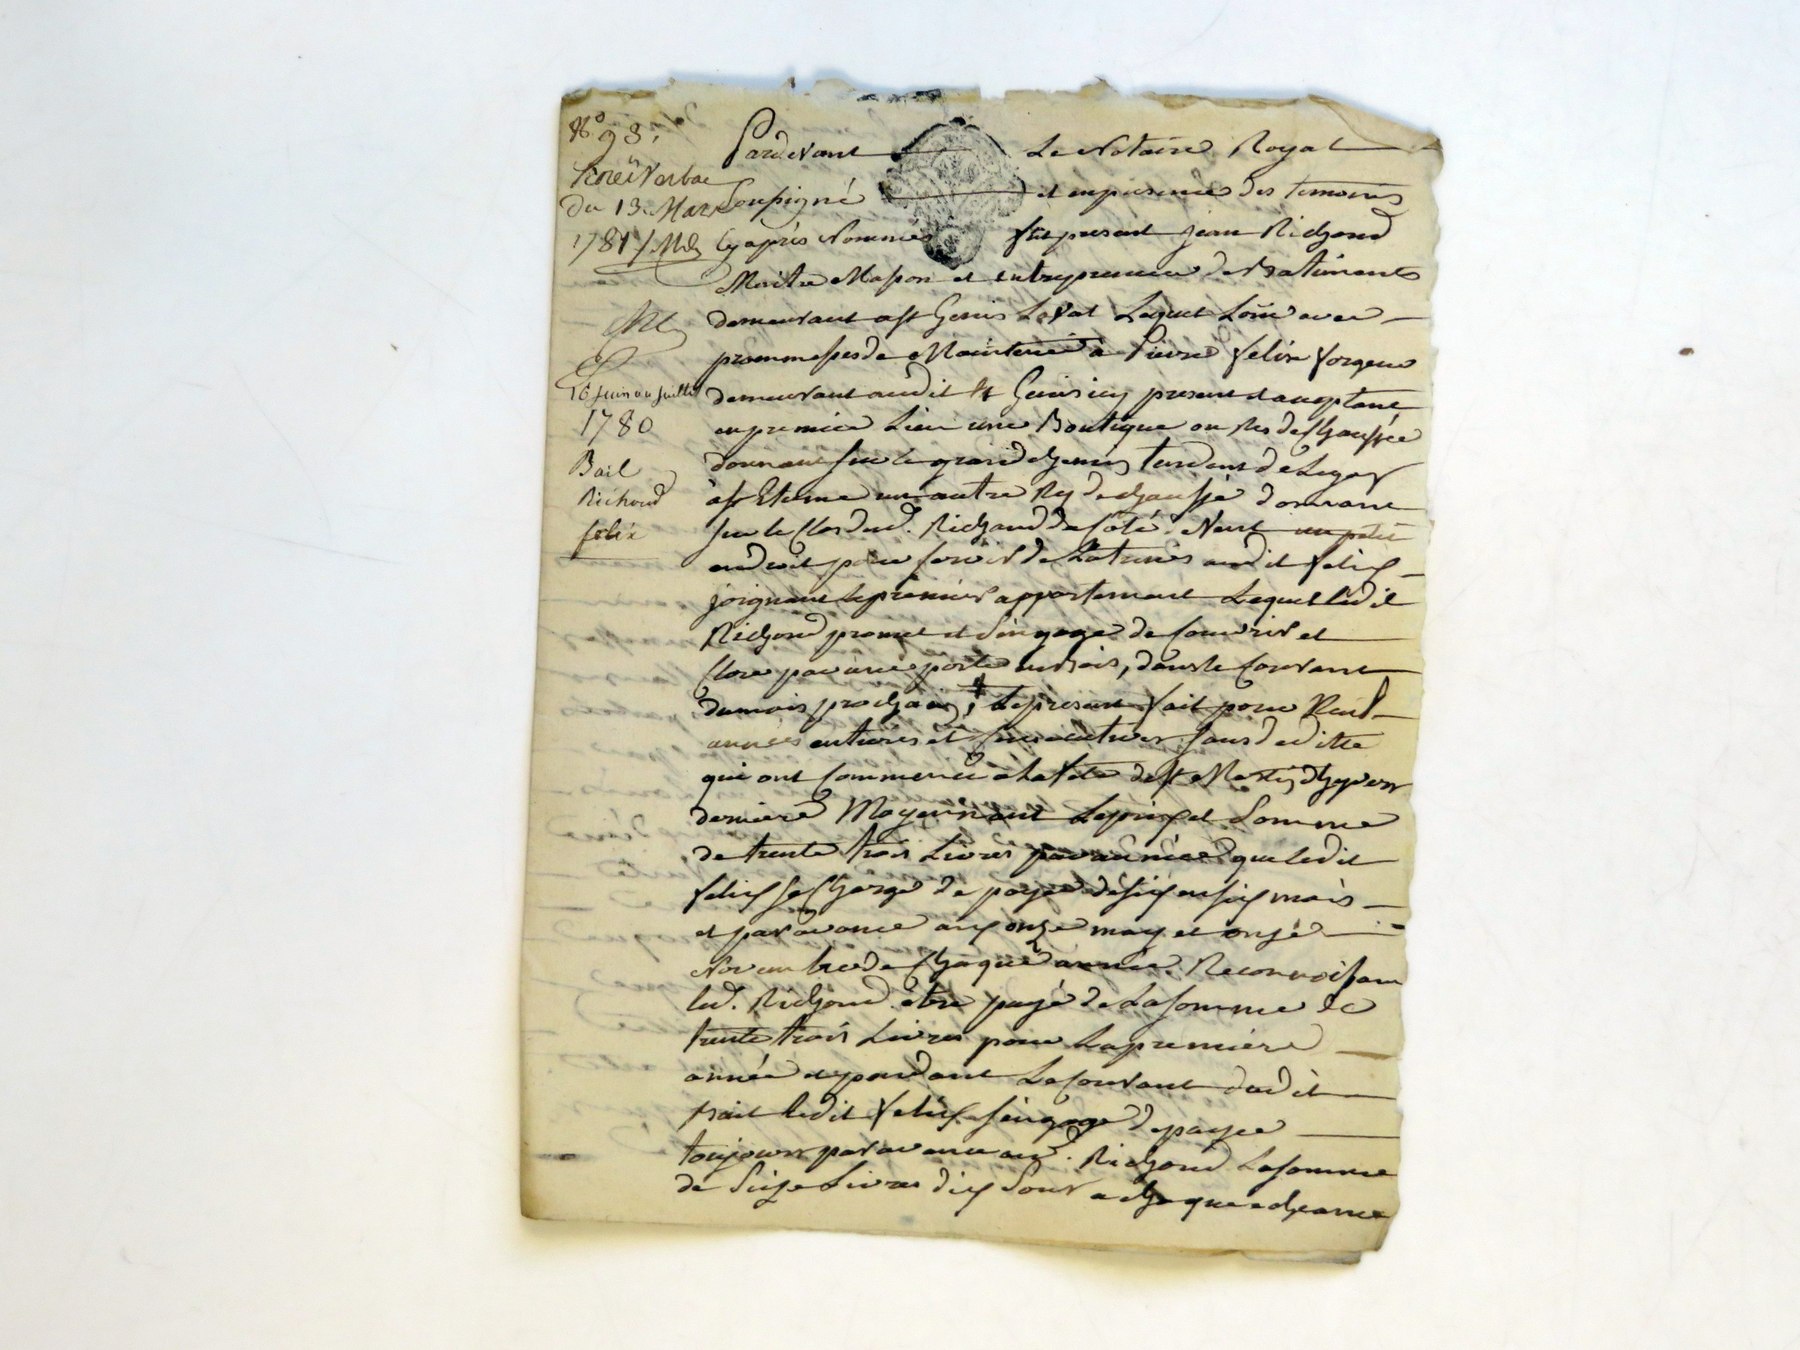 N.o 93.
du 13. Mars
1781
16 Juin au Juillet
1780
Bail
Richoud
felix
Pardevant Le Notaire Royal
Soussigné et en presence des temoins
Cyaprès Nommés fut present jean Richoud
Maitre Masson et entrepreneur de Batiments
demeurant a st Genis Laval Lequel Loüe avec
prommesses de Maintenir a Pierre felix forgeur
demeurant audit st Genis icy present et acceptant
en premier Lieu une Boutique ou Res de Chaussée
donnant sur le grand chemin tendant de Lyon
a st Etienne un autre Rez de chaussé donnant
sur le Clos dud. Richoud de Coté. Nord un petit
endroit pour servir de Latrines audit felix
joignant le premier appartement Lequel ledit
Richoud promet et S'engage de Couvrir et
Clore par une porte en bois, dans le Courant
du mois prochain, Le present fait pour Neuf
années entieres et Consecutives sans deditte
qui ont Commencé a la fete de st Martin d'hyver
derniere Moyennant Le prix et Somme
de trente trois Livres par année que ledit
felix se Charge de payer de six en six mois
et par avance aux onze may et onze
Novembre de Chaque année. Reconnoissant
led. Richoud être payé de La somme de
trente trois Livres pour La premiere
année et pendant Le Courant dudit
Bail ledit felix s'engage de payer
toujours par avance aud. Richoud La somme
de Seize Livres dix Sous a chaque echeance